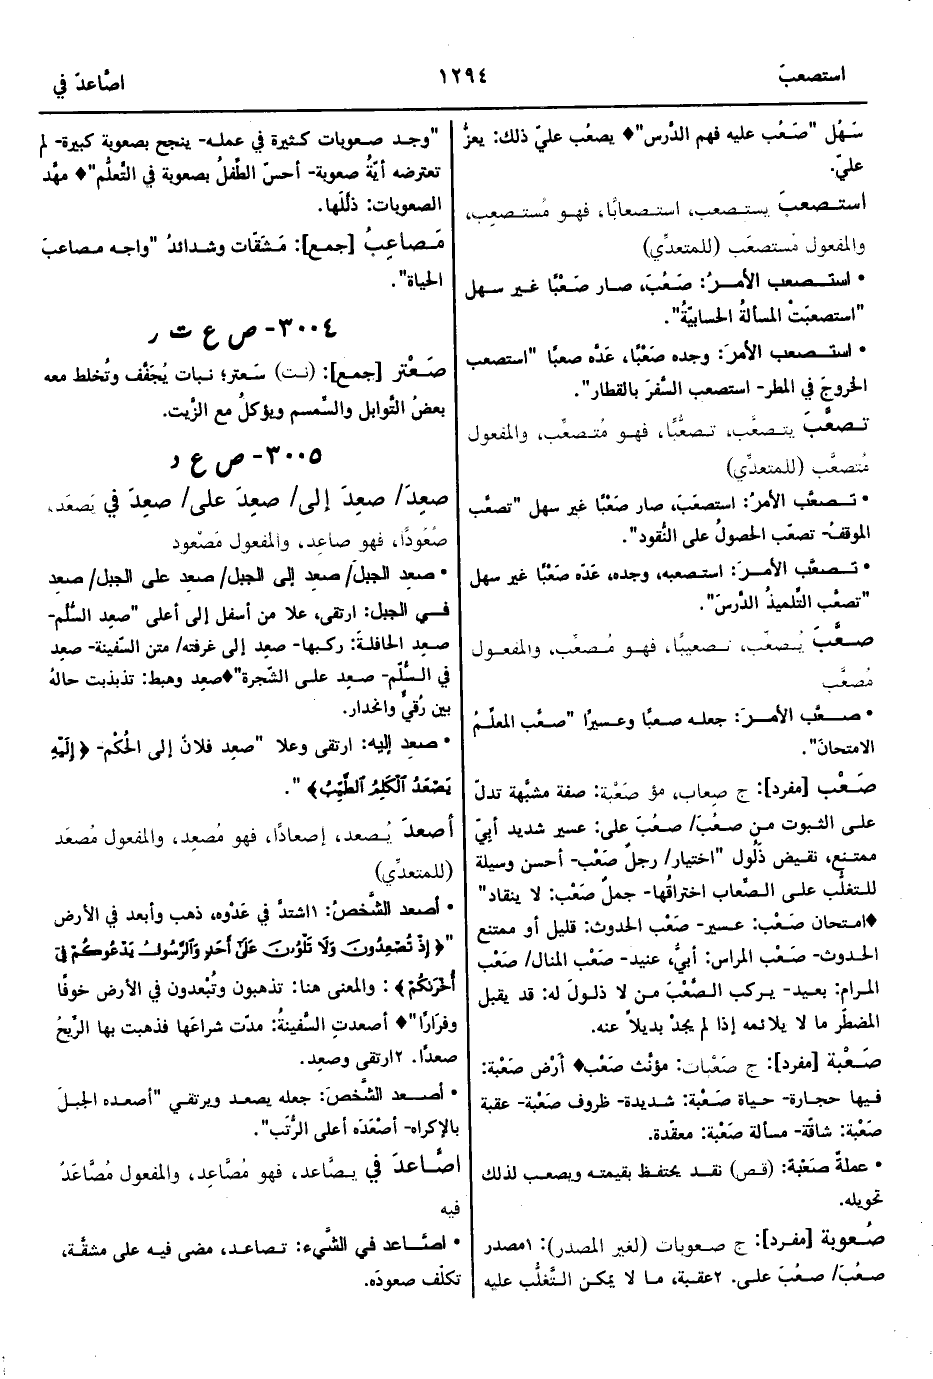 استصعبَ
١٢٩٤
اصَّاعدَ في
سَهُل "صَعُب عليه فهم الدَّرس"♦ يصعُب عليّ ذلك: يعزُّ
عليّ.
استصعبَ يستصعب، استصعابًا، فهو مُستصعِب،
والمفعول مُستصعَب (للمتعدِّي)
• استصعب الأمرُ: صَعُبَ، صار صَعْبًا غير سهل
"استصعبَتْ المسألةُ الحسابيَّةُ".
• استصعب الأمرَ: وجده صَعْبًا، عَدَّه صعبًا "استصعب
الخروجَ في المطر- استصعب السَّفرَ بالقطار".
تصعَّبَ يتصعَّب، تصعُّبًا، فهو مُتصعِّب، والمفعول
مُتصعَّب (للمتعدِّي)
• تصعَّب الأمرُ: استصعَبَ، صار صَعْبًا غير سهل "تصعَّب
الموقفُ- تصعَّب الحصولُ على النُّقود".
• تصعَّب الأمرَ: استصعبه، وجده، عَدَّه صَعْبًا غير سهل
"تصعَّب التِّلميذُ الدَّرسَ".
صعَّبَ يُصعِّب، تصعيبًا، فهو مُصعِّب، والمفعول
مُصعَّب
• صعَّب الأمرَ: جعله صعبًا وعسيرًا "صعَّب المعلِّمُ
الامتحانَ".
صَعْب [مفرد]: ج صِعاب، مؤ صَعْبة: صفة مشبَّهة تدلّ
على الثبوت من صعُبَ/ صعُبَ على: عسير شديد أبيّ
ممتنع، نقيض ذَلُول "اختيار/ رجلٌ صَعْب- أحسن وسيلة
للتغلُّب على الصِّعاب اختراقُها- جملٌ صَعْب: لا ينقاد"
♦امتحان صَعْب: عسير- صَعْب الحدوث: قليل أو ممتنع
الحدوث- صَعْب المراس: أبيٌّ، عنيد- صَعْب المنال/ صَعْب
المرام: بعيد- يركب الصَّعْبَ من لا ذلولَ له: قد يقبل
المضطّر ما لا يلائمه إذا لم يجدْ بديلاً عنه.
صَعْبة [مفرد]: ج صَعْبات: مؤنّث صَعْب♦ أرْض صَعْبة:
فيها حجارة- حياة صَعْبة: شديدة- ظروف صَعْبة- عقبة
صَعْبة: شاقّة- مسألة صَعْبة: معقدة.
• عملةٌ صَعْبة: (قص) نقد يحتفظ بقيمته ويصعب لذلك
تحويله.
صُعوبة [مفرد]: ج صعوبات (لغير المصدر): ١مصدر
صعُبَ/ صعُبَ على. ٢عقبة، ما لا يمكن التَّغلُّب عليه
"وجد صعوبات كثيرة في عمله- ينجح بصعوبة كبيرة- لم
تعترضه أيّةُ صعوبة- أحسّ الطِّفلُ بصعوبة في التَّعلُّم"♦ مهَّد
الصعوبات: ذلَّلَها.
مَصاعِبُ [جمع]: مَشقّات وشدائدُ "واجه مصاعبَ
الحياة".
٣٠٠٤- ص ع ت ر
صَعْتَر [جمع]: (نت) سَعتر؛ نبات يُجَفَّف وتُخلط معه
بعضُ التَّوابل والسِّمسم ويؤكلُ مع الزَّيت.
٣٠٠٥- ص ع د
صعِدَ/ صعِدَ إلى/ صعِدَ على/ صعِدَ في يَصعَد،
صُعُودًا، فهو صاعِد، والمفعول مَصْعود
• صعِد الجبلَ/ صعِد إلى الجبل/ صعِد على الجبل/ صعِد
في الجبل: ارتقى، علا من أسفل إلى أعلى "صعِد السُّلَّم-
صعِد الحافلةَ: ركبها- صعِد إلى غرفته/ متن السَّفينة- صعِد
في السُّلَّم- صعِد على الشَّجرة"♦صعِد وهبط: تذبذبت حالهُ
بين رُقيٍّ وانحدار.
• صعِد إليه: ارتقى وعلا "صعِد فلانٌ إلى الحُكْم- ﴿إِلَيْهِ
يَصْعَدُ ٱلْكَلِمُ ٱلطَّيِّبُ﴾ ".
أصعدَ يُصعد، إصعادًا، فهو مُصعِد، والمفعول مُصعَد
(للمتعدِّي)
• أصعد الشَّخصُ: ١اشتدَّ في عَدْوِه، ذهب وأبعد في الأرض
"﴿إِذْ تُصْعِدُونَ وَلَا تَلْوُۥنَ عَلَىٰٓ أَحَدٍ وَٱلرَّسُولُ يَدْعُوكُمْ فِىٓ
أُخْرَىٰكُمْ﴾: والمعنى هنا: تذهبون وتُبْعدون في الأرض خوفًا
وفرارًا"♦ أصعدتِ السَّفينةُ: مدّت شراعَها فذهبت بها الرِّيحُ
صعدًا. ٢ارتقى وصعِد.
• أصعد الشَّخصَ: جعله يصعد ويرتقي "أصعده الجبلَ
بالإكراه- أصْعَدَه أعلى الرُّتَب".
اصَّاعدَ في يصَّاعد، فهو مُصَّاعِد، والمفعول مُصَّاعَدٌ
فيه
• اصَّاعد في الشَّيء: تصاعد، مضى فيه على مشقَّة،
تكلّف صعودَه.